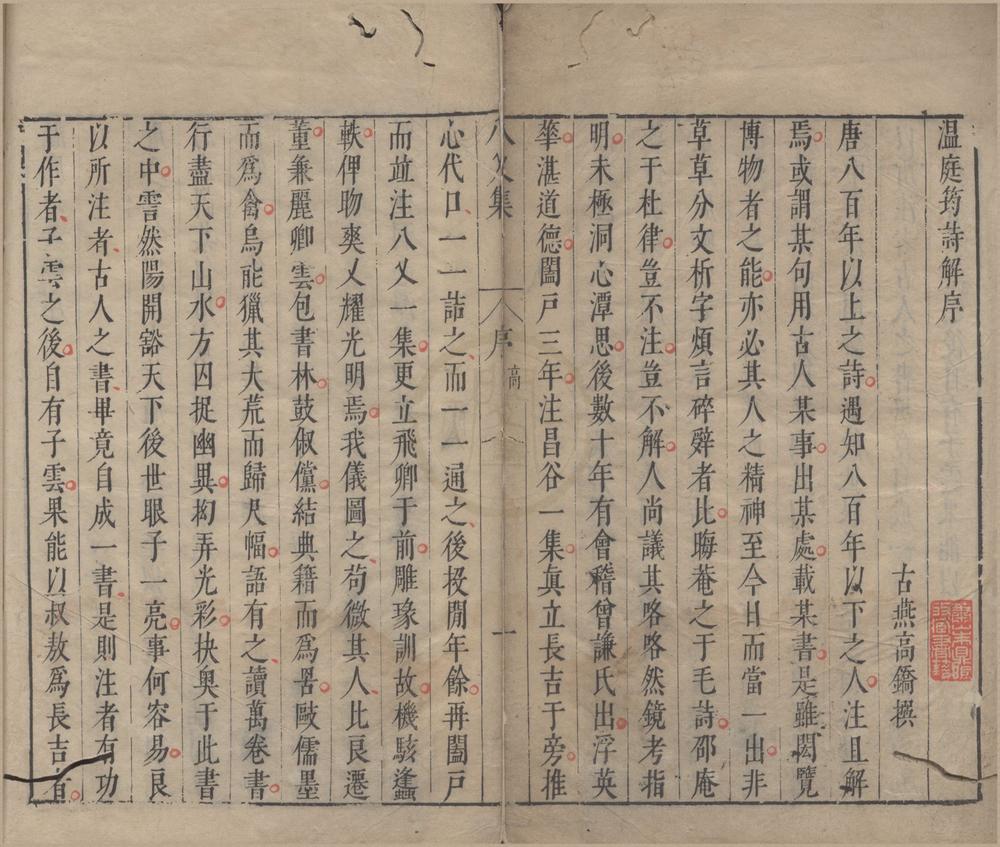 温庭筠詩解序
古燕高鐈撰
唐八百年以上之詩遇知八百年以下之人注且解
焉或謂某句用古人某事出某處載某書是雖閎覽
博物者之能亦必其人之精神至今日而當一出非
草草分文析字煩言碎辭者比晦菴之于毛詩邵庵
之于杜律豈不注豈不解人尚議其咯咯然鏡考指
明未極洞心潭思後數十年有會稽曾謙氏出浮英
華湛道德闔戸三年注昌谷一集真立長吉于旁推
八乂集
序
高
一
心代口一一詰之而一一通之後投閒年餘再闔戸
而竝注八乂一集更立飛卿于前雕瑑訓故機駭蠭
軼俾昒爽乂耀光明焉我儀圖之苟微其人比良遷
董兼麗卿雲包書林鼓俶儻結典籍而爲罟歐儒墨
而爲禽烏能獵其大荒而歸尺幅語有之讀萬卷書
行盡天下山水方囚捉幽異抝弄光彩抉奥于此書
之中霅然陽開豁天下後世眼子一亮事何容易良
以所注者古人之書畢竟自成一書是則注者有功
于作者子雲之後自有子雲果能以叔敖爲長吉者